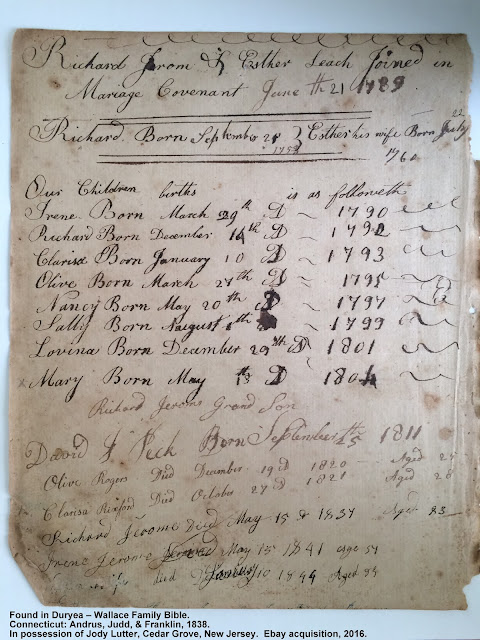 Richard Jerom & Esther Leach Joined in
Mariage Covenant June th 21 1789
Richard Born September 25 } Esther his wife Born July 22
1753 1760
Our Children births is as followeth
Irene Born March 29th D ~ 1790
Richard Born December 14th D ~ 1792
Clarisa Born January 10 D ~ 1793
Olive Born March 27th D ~ 1795
Nancy Born May 20th D ~ 1797
Sally Born August 1th ~ 1799
Lovina Born December 29th D 1801
Mary Born May D 1804
Richard Jeroms Grand Son
David J Peck Born September th 15 1811
Olive Rogers Died December 19 d 1820 — Aged 25
Clarisa Rexford Died October 27 d 1821 Aged 28
Richard Jerome Died May 15 d 1837 Aged 83
Irene Jerome May 15 1841 age 51
died 10 1844 Aged 84
Found in Duryea – Wallace Family Bible.
Connecticut: Andrus, Judd, & Franklin, 1838.
In possession of Jody Lutter, Cedar Grove, New Jersey. Ebay acquisition, 2016.